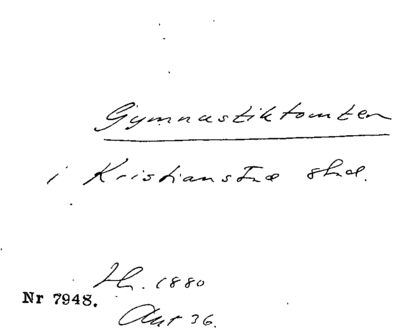 Gymnastiktomten
i Kristianstad stad.
H. 1880
Nr 7948.
Akt 36.